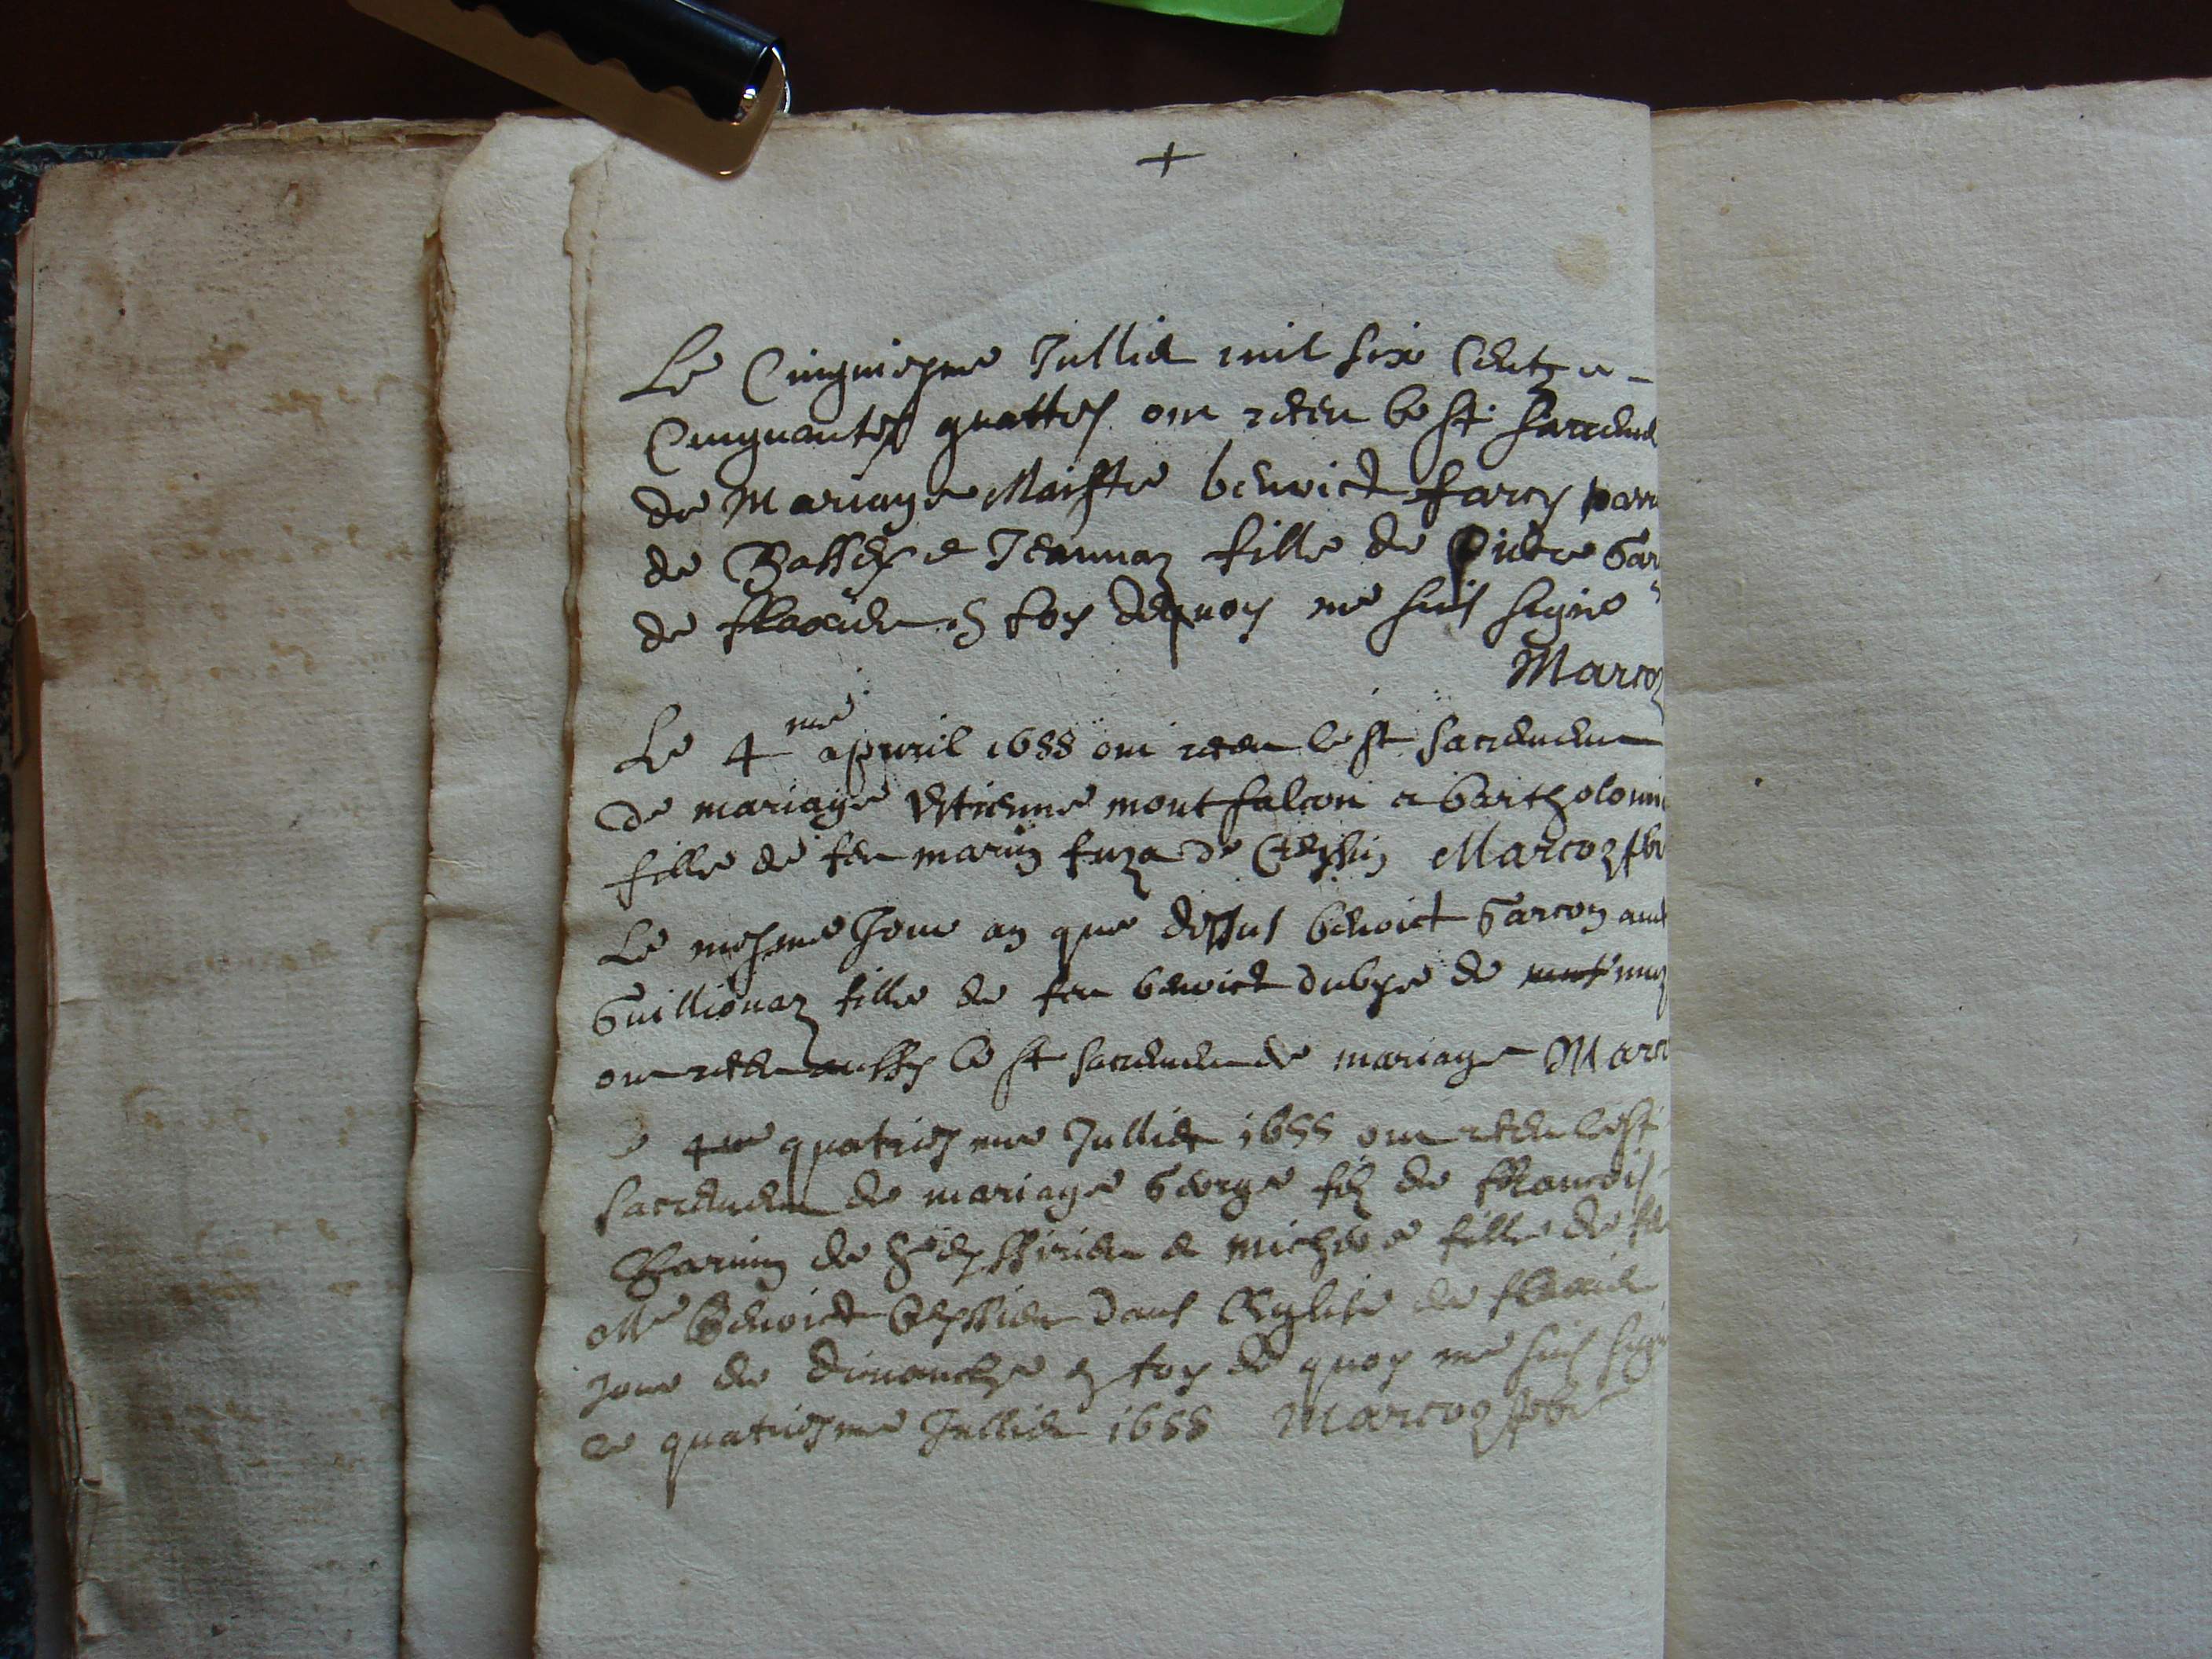 +
Le Cinquiesme Jullie mil six Centz e
Cinquantes quattes ont receu le st sacreme
de Mariage Maistre benoict farcy
de Bassy e Jeannaz fille de Pierre Gar
de flaxieu en foy dequoy me suis signé
Marcoz
Le 4me apvril 1655 ont receu le st sacrement
de mariage Estienne montfalcon e bartholomi
fille de feu marin fuza de Marcoz pbr
Le mesme Jour an que dessus benoict Garcon auec
Guillionaz fille de feu benoict de
ont receu aussy le st sacrement de mariage Marc
4me quatriesme Jullie 1655 ont receu le st
sacrement de mariage George filz de ffrancois
de e fille de feu
Me Benoict dans Eglise de flaxieu
Jour de dimanche en foy de quoy me suis sign
le quatriesme Jullie 1655 Marcoz pbr